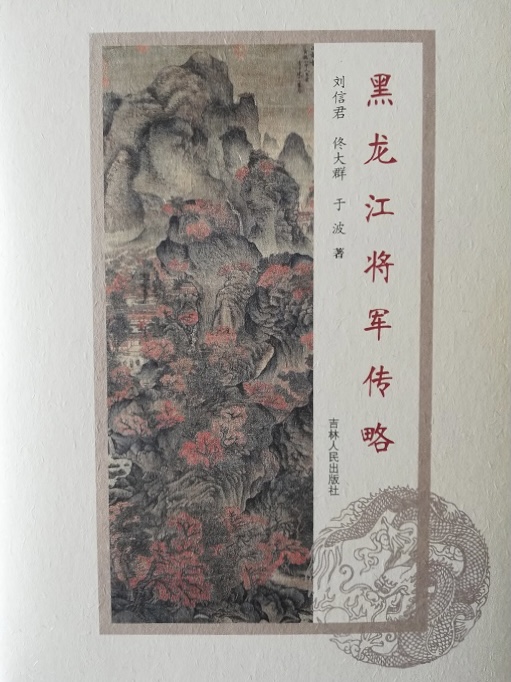 黑龙江将军传略
刘信君 佟大群 于波 著
吉林人民出版社